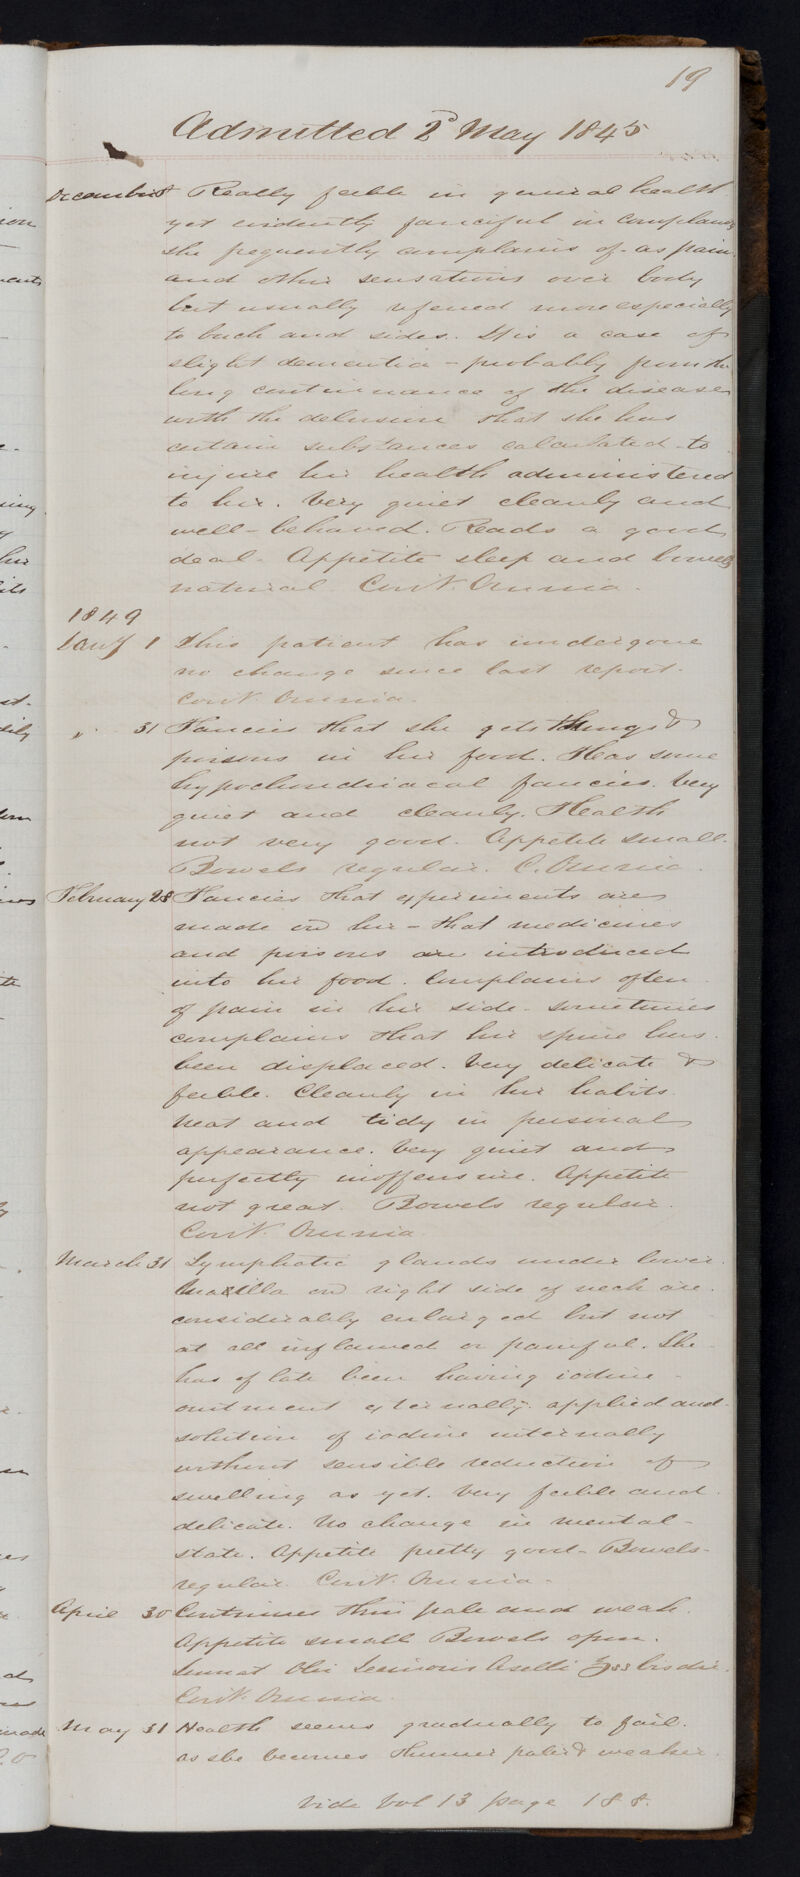 19
Admitted 2d May 1845
December Really feeble in general health
yet evidently fanciful in complaints
she frequently complains of as pain
and other sensations over body
but usually referred more especially
to back and sides. It is a case of
slight dementia - probably from the
long continuance of the disease
with the delusion that she has
certain substances calculated to
injure her health administered
to her. Very quiet cleanly and
well-behaved. Reads a good
deal. Appetite sleep and bowels
natural Cont. Omnia.
1849
Jany 1 This patient has undergone
no change since last report.
Cont. Omnia.
" 31 Fancies that she gets things &
poisons in her food. Has some
hypochondriacal fancies. Very
quiet and cleanly. Health
not very good. Appetite small.
Bowels regular. C. Omnia.
February 28 Fancies that experiments are
made on her - that medicines
and poisons are introduced
into her food. Complains often
of pain in her side - sometimes
complains that her spine has
been displaced. Very delicate &
feeble. Cleanly in her habits.
Neat and tidy in personal
appearance. Very quiet and
perfectly inoffensive. Appetite
not great. Bowels regular.
Cont. Omnia.
March 31 Lymphatic glands under lower
Maxilla on right side of neck are
considerably enlarged but not
at all inflamed or painful. She
has of late been having iodine
ointment externally applied and
solution of iodine internally
without sensible reduction of
swelling as yet. Very feeble and
delicate. No change in mental
state. Appetite pretty good - Bowels
regular. Cont. Omnia.
April 30 Continues thin pale and weak.
Appetite small Bowels open.
Sumat Olei Jecinoris Aselli ℥ss bis die.
Cont. Omnia.
May 31 Health seems gradually to fail.
as she becomes thinner paler & weaker.
Vide Vol 13 page 188.